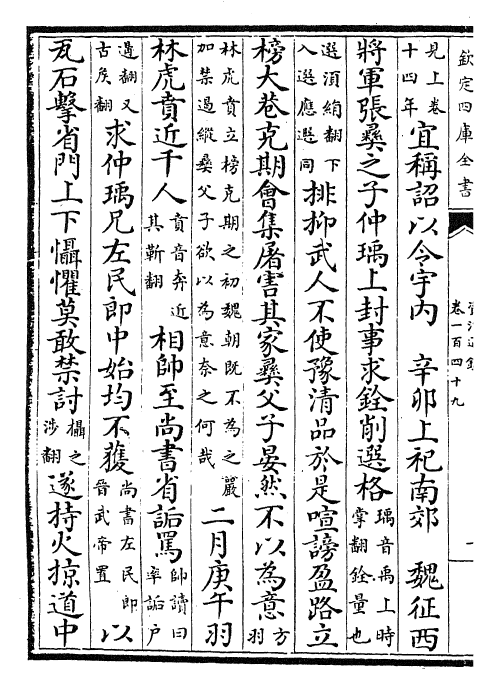 欽定四庫全書
資治通鑑
卷一百四十九
一
見上卷十四年宜稱詔以令宇内　辛卯上祀南郊　魏征西
將軍張彝之子仲瑀上封事求銓削選格瑀音禹上時掌翻銓量也
選須絹翻下入選應選同排抑武人不使豫清品於是喧謗盈路立
榜大巷克期會集屠害其家彝父子晏然不以為意方羽
林虎賁立榜克期之初魏朝既不為之嚴加禁遏縱彝父子欲以為意奈之何哉二月庚午羽
林虎賁近千人賁音奔近其靳翻相帥至尚書省詬罵帥讀曰率詬戶
遘翻又古矦翻求仲瑀兄左民郎中始均不獲尚書左民郎晉武帝置以
瓦石擊省門上下懾懼莫敢禁討懾之涉翻遂持火掠道中